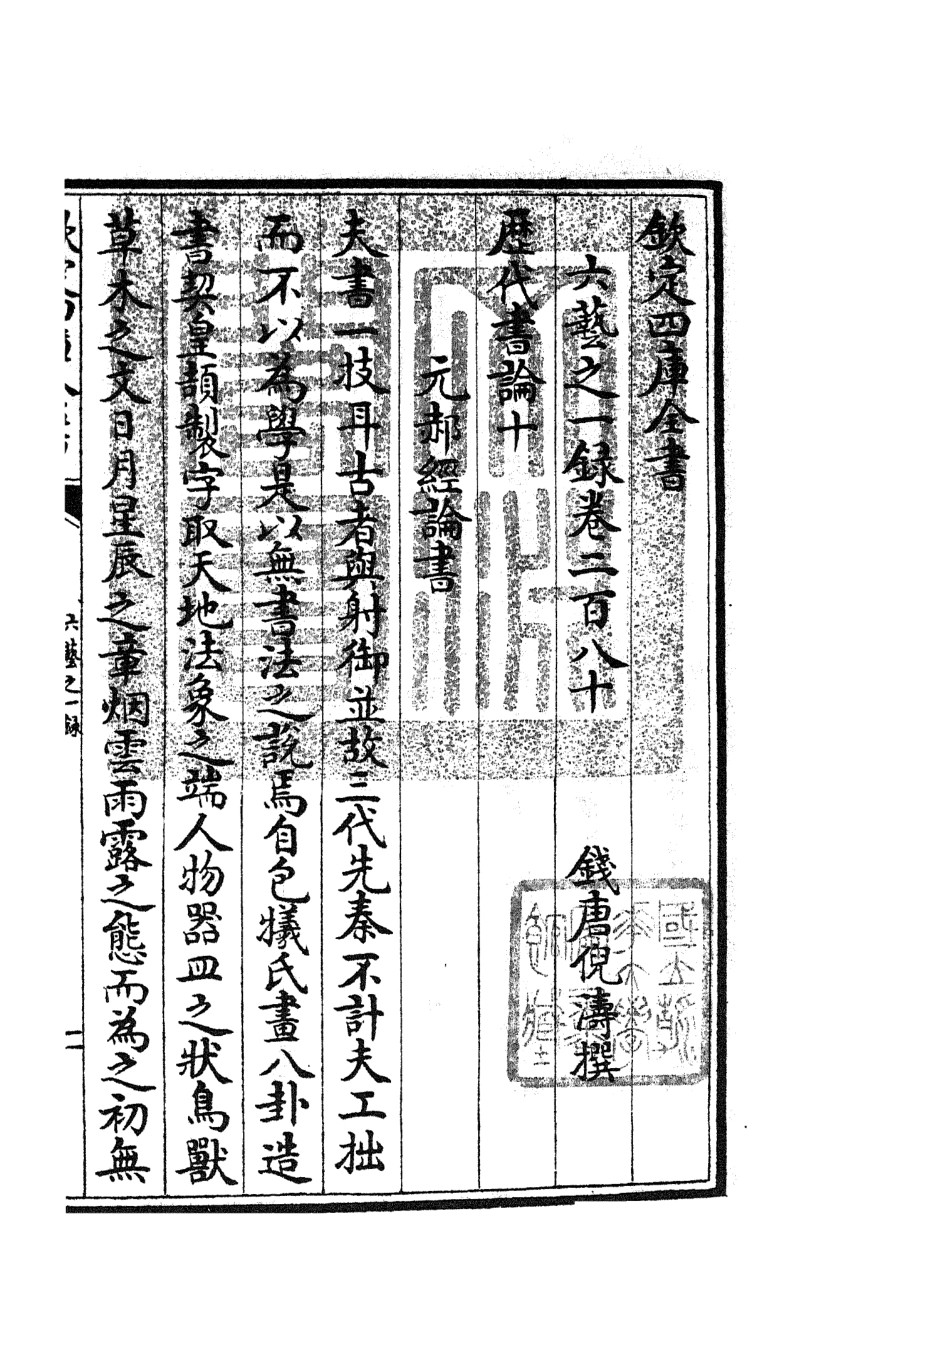 欽定四庫全書
六藝之一録卷二百八十
錢唐倪濤撰
歴代書論十
元郝經論書
夫書一技耳古者與射御並故三代先秦不計夫工拙
而不以為學是以無書法之說焉自包犧氏畫八卦造
書契皇頡製字取天地法象之端人物器皿之狀鳥獸
草木之文日月星辰之章烟雲雨露之態而為之初無
六藝之一録